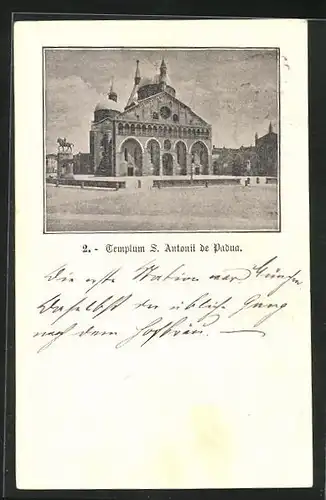 2. - Templum S. Antonii de Padua.
Die erste Station war München
Daselbst der übliche Gang
nach dem Hofbräu. —